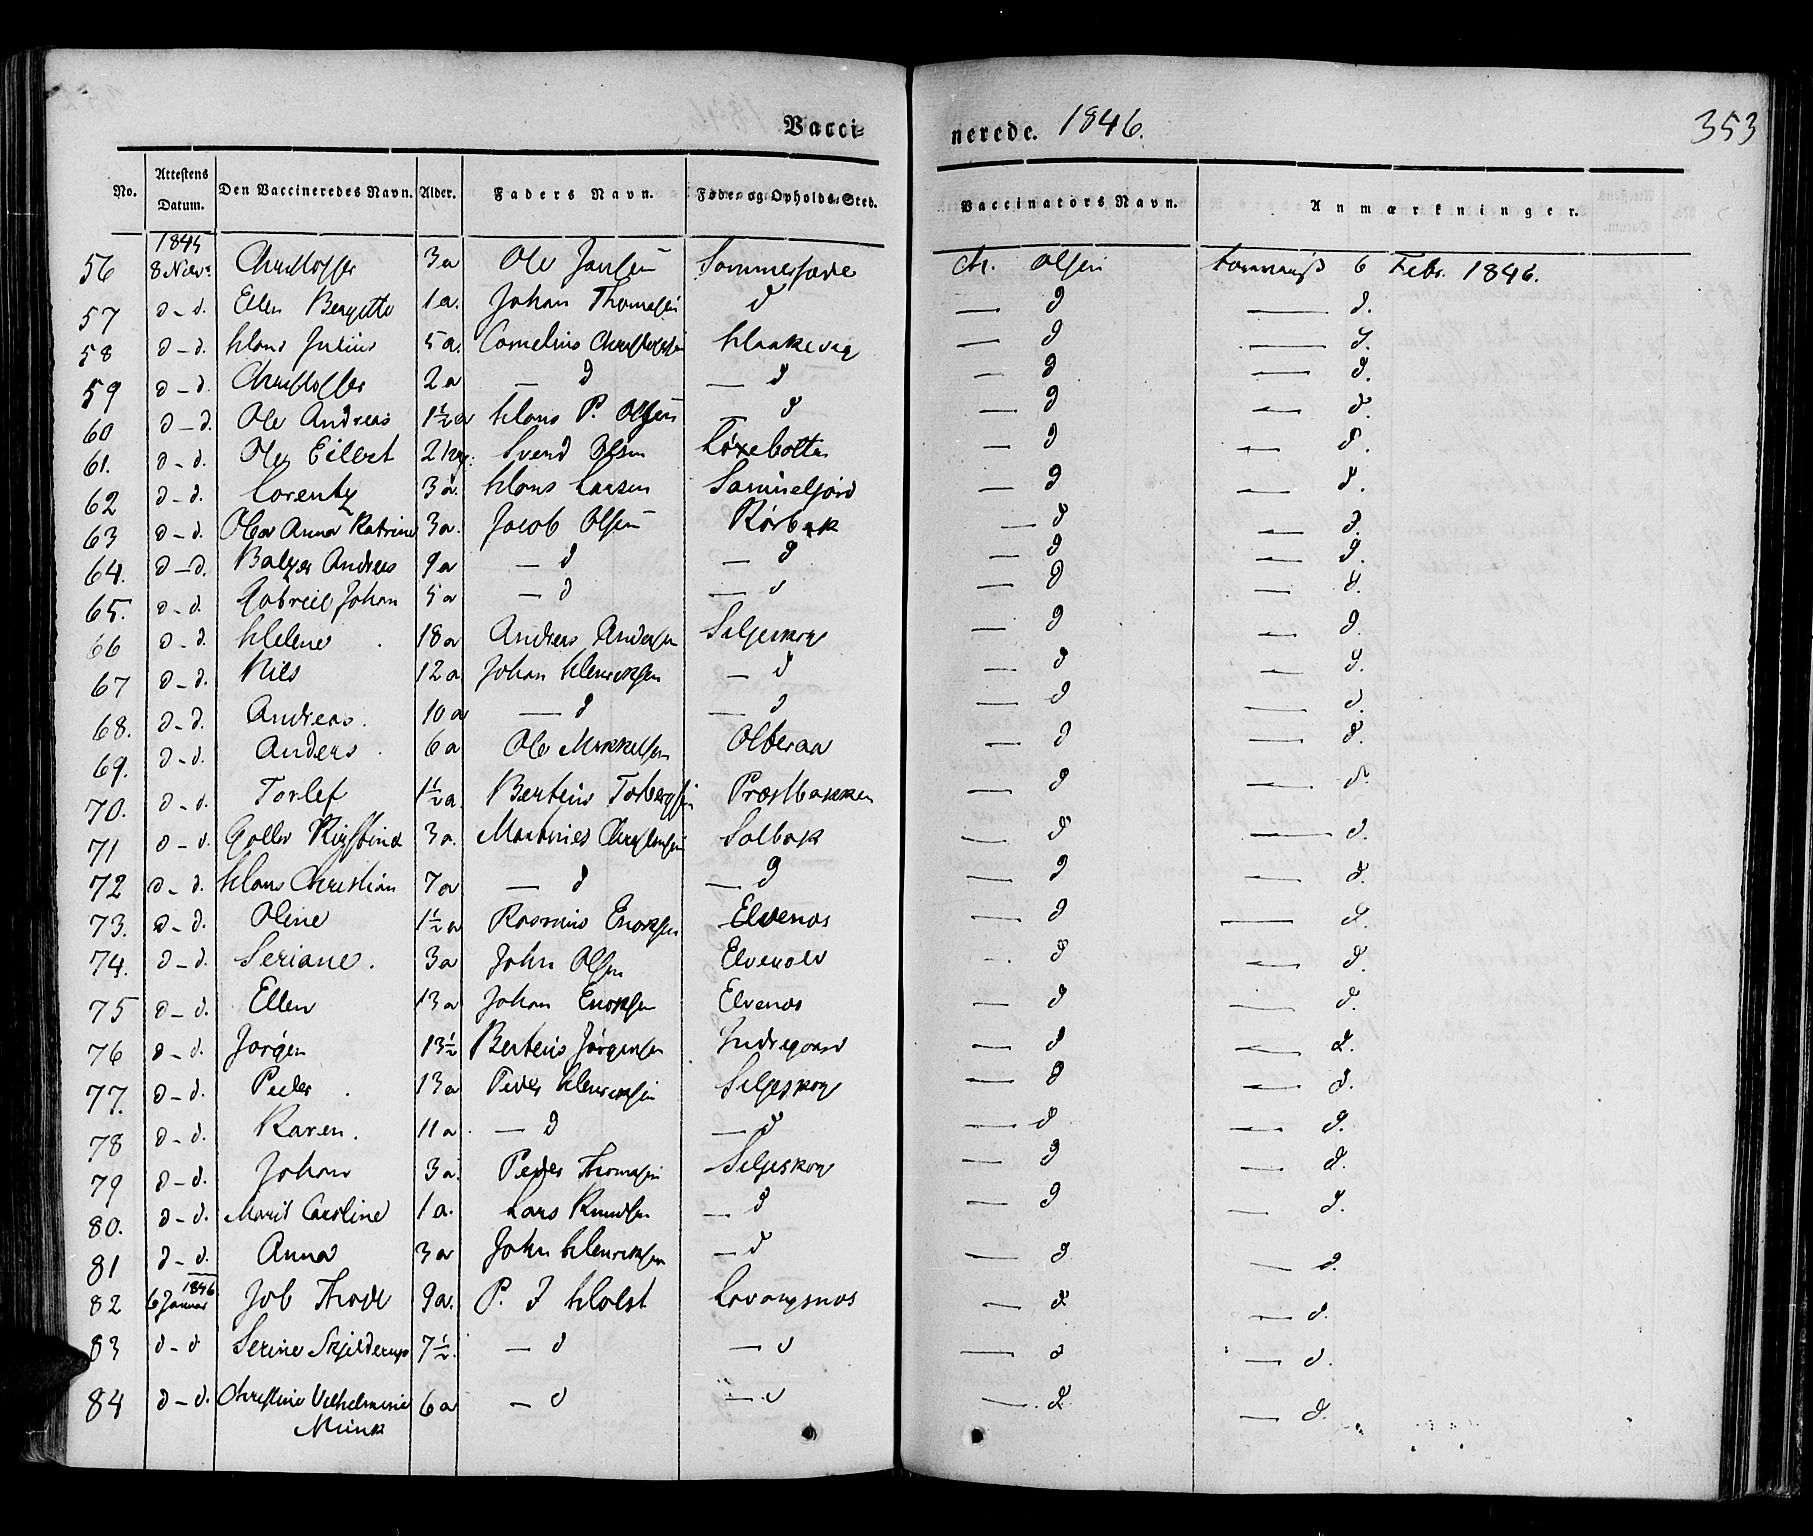 Vacci=
nerede. 1846.
353
No. Attestens Datum. Den Vaccineredes Navn. Alder. Faders Navn. Føde- og Opholds-Sted. Vaccinators Navn. Anmærkninger.
1845
56 8 Novr Christoffer 3 a Ole Jansen Ch. Olsen 6 Febr. 1846.
57 d - d. Ellen Bergitte 1 a. Johan Thomesen d — d — d.
58 d - d. Hans Julius 5 a. Cornelius Christoffersen — d — d.
59 d - d. Christoffer 2 a — d — d — d — d.
60 d - d. Ole Andreas 1½ a Hans P. Olsen d — d — d.
61. d - d. Ole Eilert 2 Svend Olsen Løxebotten — d — d.
62 d - d. Lorentz 3 a. Hans Larsen — d — d.
63 d - d. Olea Anna Katrine 3 a. Jacob Olsen Rørbak — d — d.
64. d - d. Balzer Andreas 9 a — d — d — d — d.
65. d - d. Gabreil Johan 5 a — d — d — d — d.
66 d - d. Helene 18 a Andreas Andersen Seljeskog — d — d.
67 d - d. Nils 12 a Johan Henriksen — d — d — d.
68. d - d. Andreas. 10 a — d — d — d — d.
69. d - d. Anders. 6 a Ole Mikkelsen — d — d.
70. d - d. Torlef 1½ a. Berteus Torbergsen Præstbakken — d — d.
71 d - d. 3 a. Martinies Christensen Solbak — d — d.
72 d - d. Hans Christian 7 a — d — d — d — d.
73. d - d. Oline 1½ a Rasmus Enoksen Elvenes — d — d.
74. d - d. Seriane. 3 a John Olsen Elvevold - d — d.
75 d - d. Ellen 13 a Johan Enoksen Elvenes — d — d.
76 d - d. Jørgen 13½ Berteus Jørgensen Indregaard — d — d.
77. d - d. Peder. 13 a Peder Henriksen Seljeskog — d — d.
78 d - d. Karen. 11 a — d — d — d — d.
79 d - d. Johan 3 a. Peder Thomesen Seljeskog — d — d.
80. d - d. Marit Caroline 1 a. Lars Knudsen — d — d — d.
81 d - d. Anna 3 a John Henriksen — d — d — d.
1846
82 6 Januar Job Thode 9 a. P. J Holst Lavangsnes — d — d.
83 d - d Serine Skjelderup 7½. — d — d — d — d.
84 d - d. Christine Vilhelmine 6 a — d — d — d. — d.
Munk